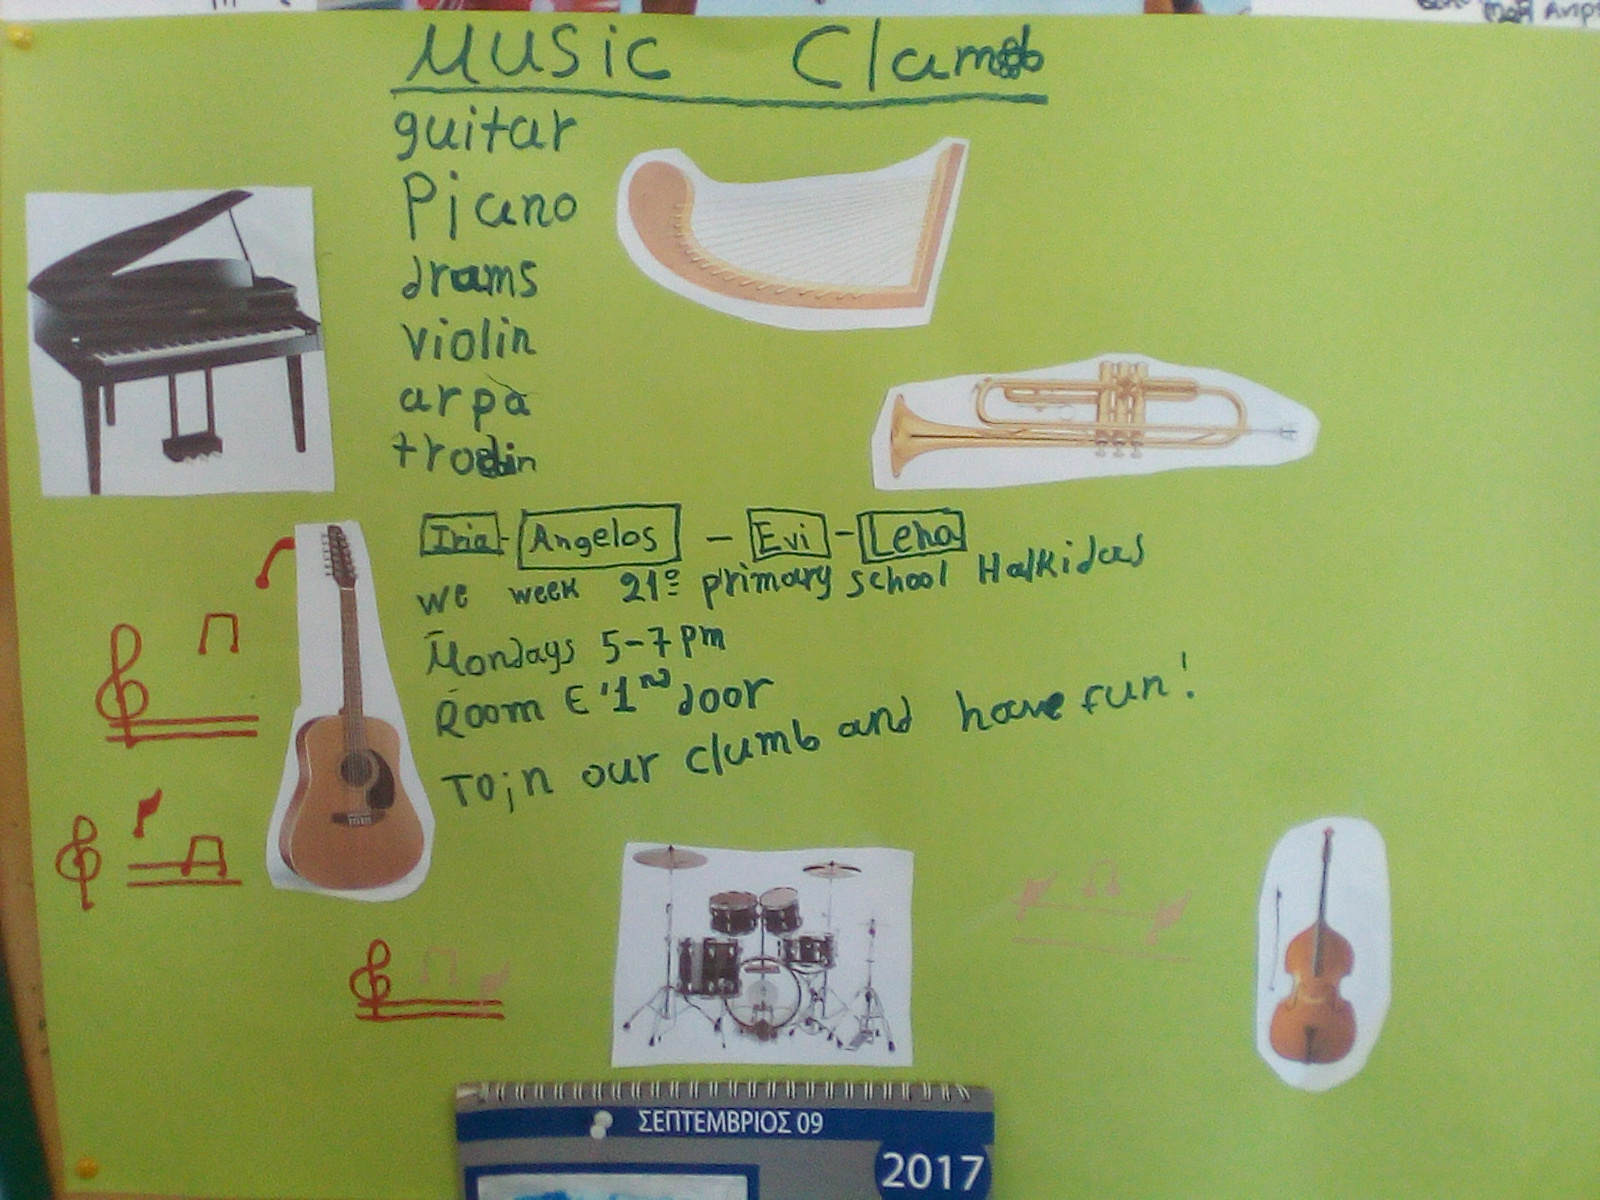 Music Clamb
guitar
Piano
drams
violin
arpa
Iria - Angelos - Evi - Lena
we week 21º primary school Halkidas
Mondays 5-7 pm
Room E '1nd door
Tojn our clumb and have fun!
ΣΕΠΤΕΜΒΡΙΟΣ 09
2017